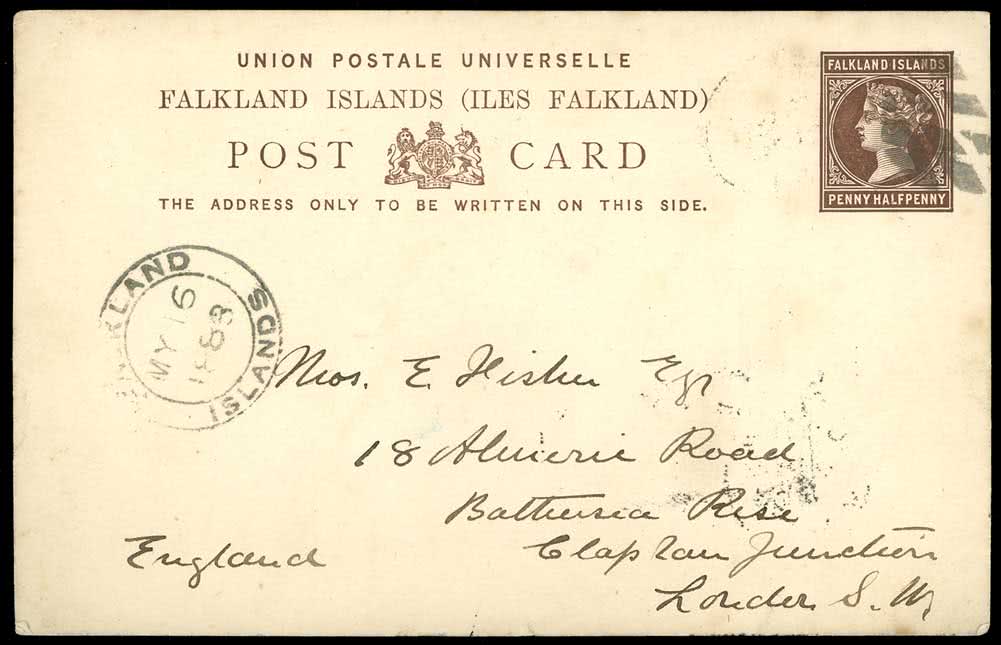 UNION POSTALE UNIVERSELLE
FALKLAND ISLANDS (ILES FALKLAND)
POST CARD
THE ADDRESS ONLY TO BE WRITTEN ON THIS SIDE.
FALKLAND ISLANDS
PENNY HALFPENNY
FALKLAND ISLANDS
MY 16
1888
E. Fisher Esqr
18 Almeric Road
Battersea Rise
Clapham Junction
London S. W.
England